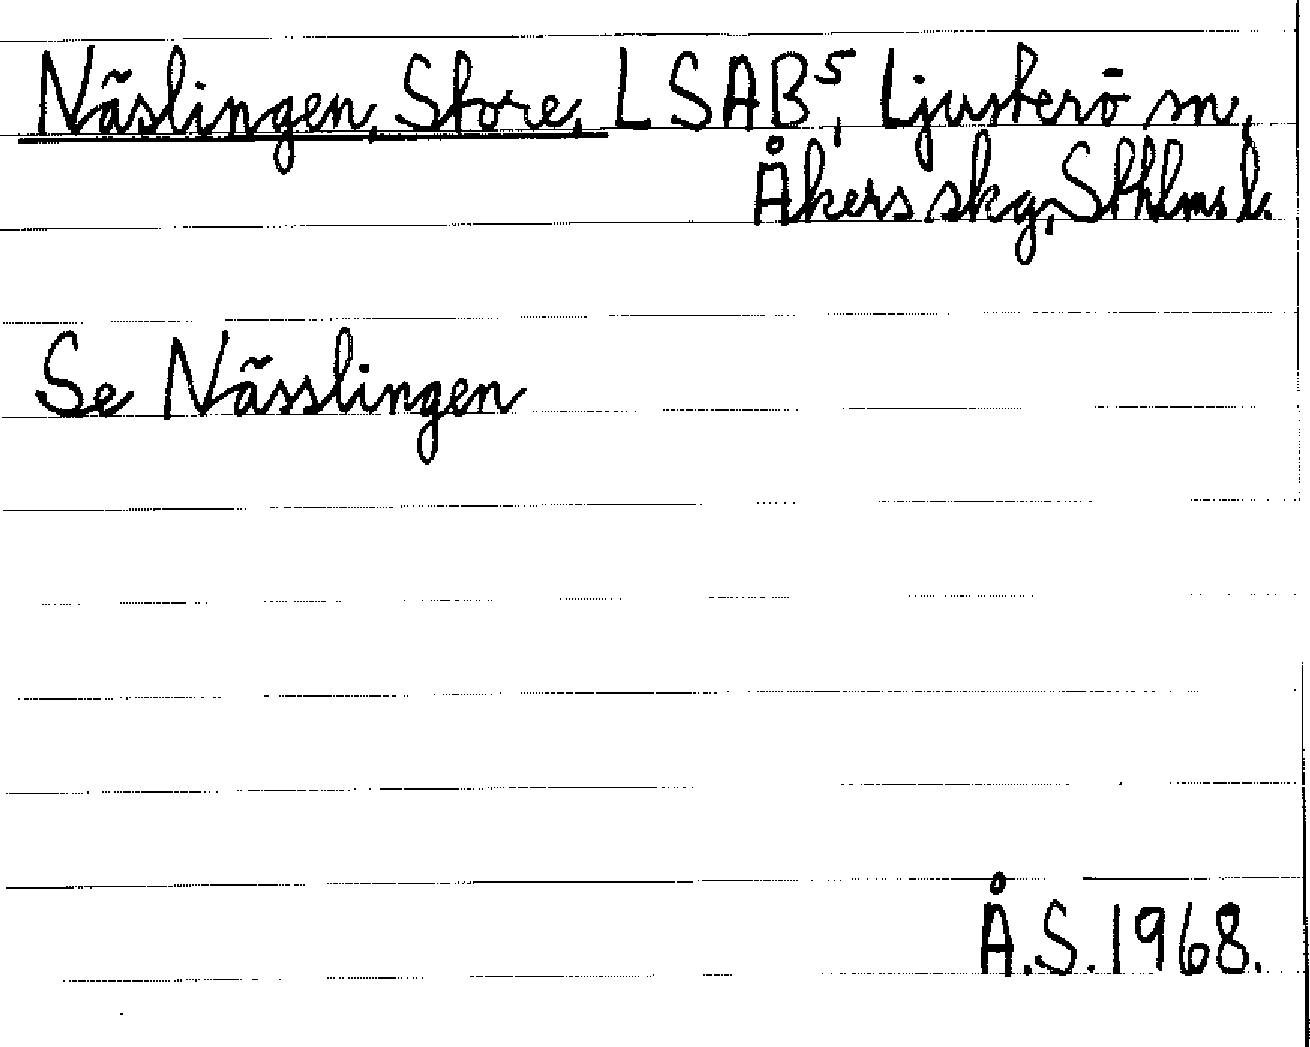 Näslingen, Store, L SAB⁵, Ljusterö sn,
Åkers skg, Sthlms l.
Se Nässlingen
Å.S. 1968.